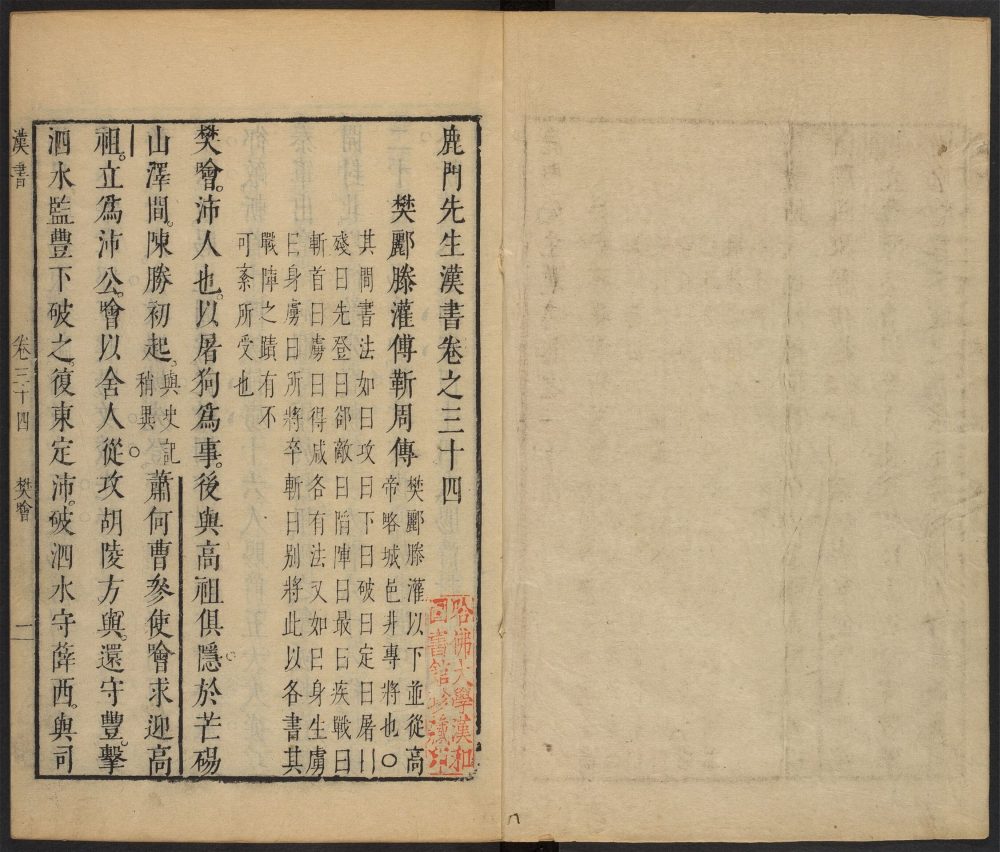 鹿門先生漢書卷之三十四
樊酈滕灌傅靳周傳
樊酈滕灌以下並從高
帝略城邑非專將也○
其間書法如曰攻曰下曰破曰定曰屠曰
殘曰先登曰郤敵曰陷陣曰最曰疾戰曰
斬首曰虜曰得咸各有法又如曰身生虜
曰身虜曰所將卒斬曰别將此以各書其
戰陣之蹟有不
可紊所受也
樊噲。沛人也。以屠狗爲事。後與高祖俱隱於芒碭
山澤間。陳勝初起。與史記稍異○蕭何曹參使噲求迎高
祖。立爲沛公。噲以舍人從攻胡陵方與。還守豐。擊
泗水監豐下破之。復東定沛。破泗水守薛西。與司
漢書
卷三十四
樊噲
一
哈佛大學漢和
圖書館珍藏印